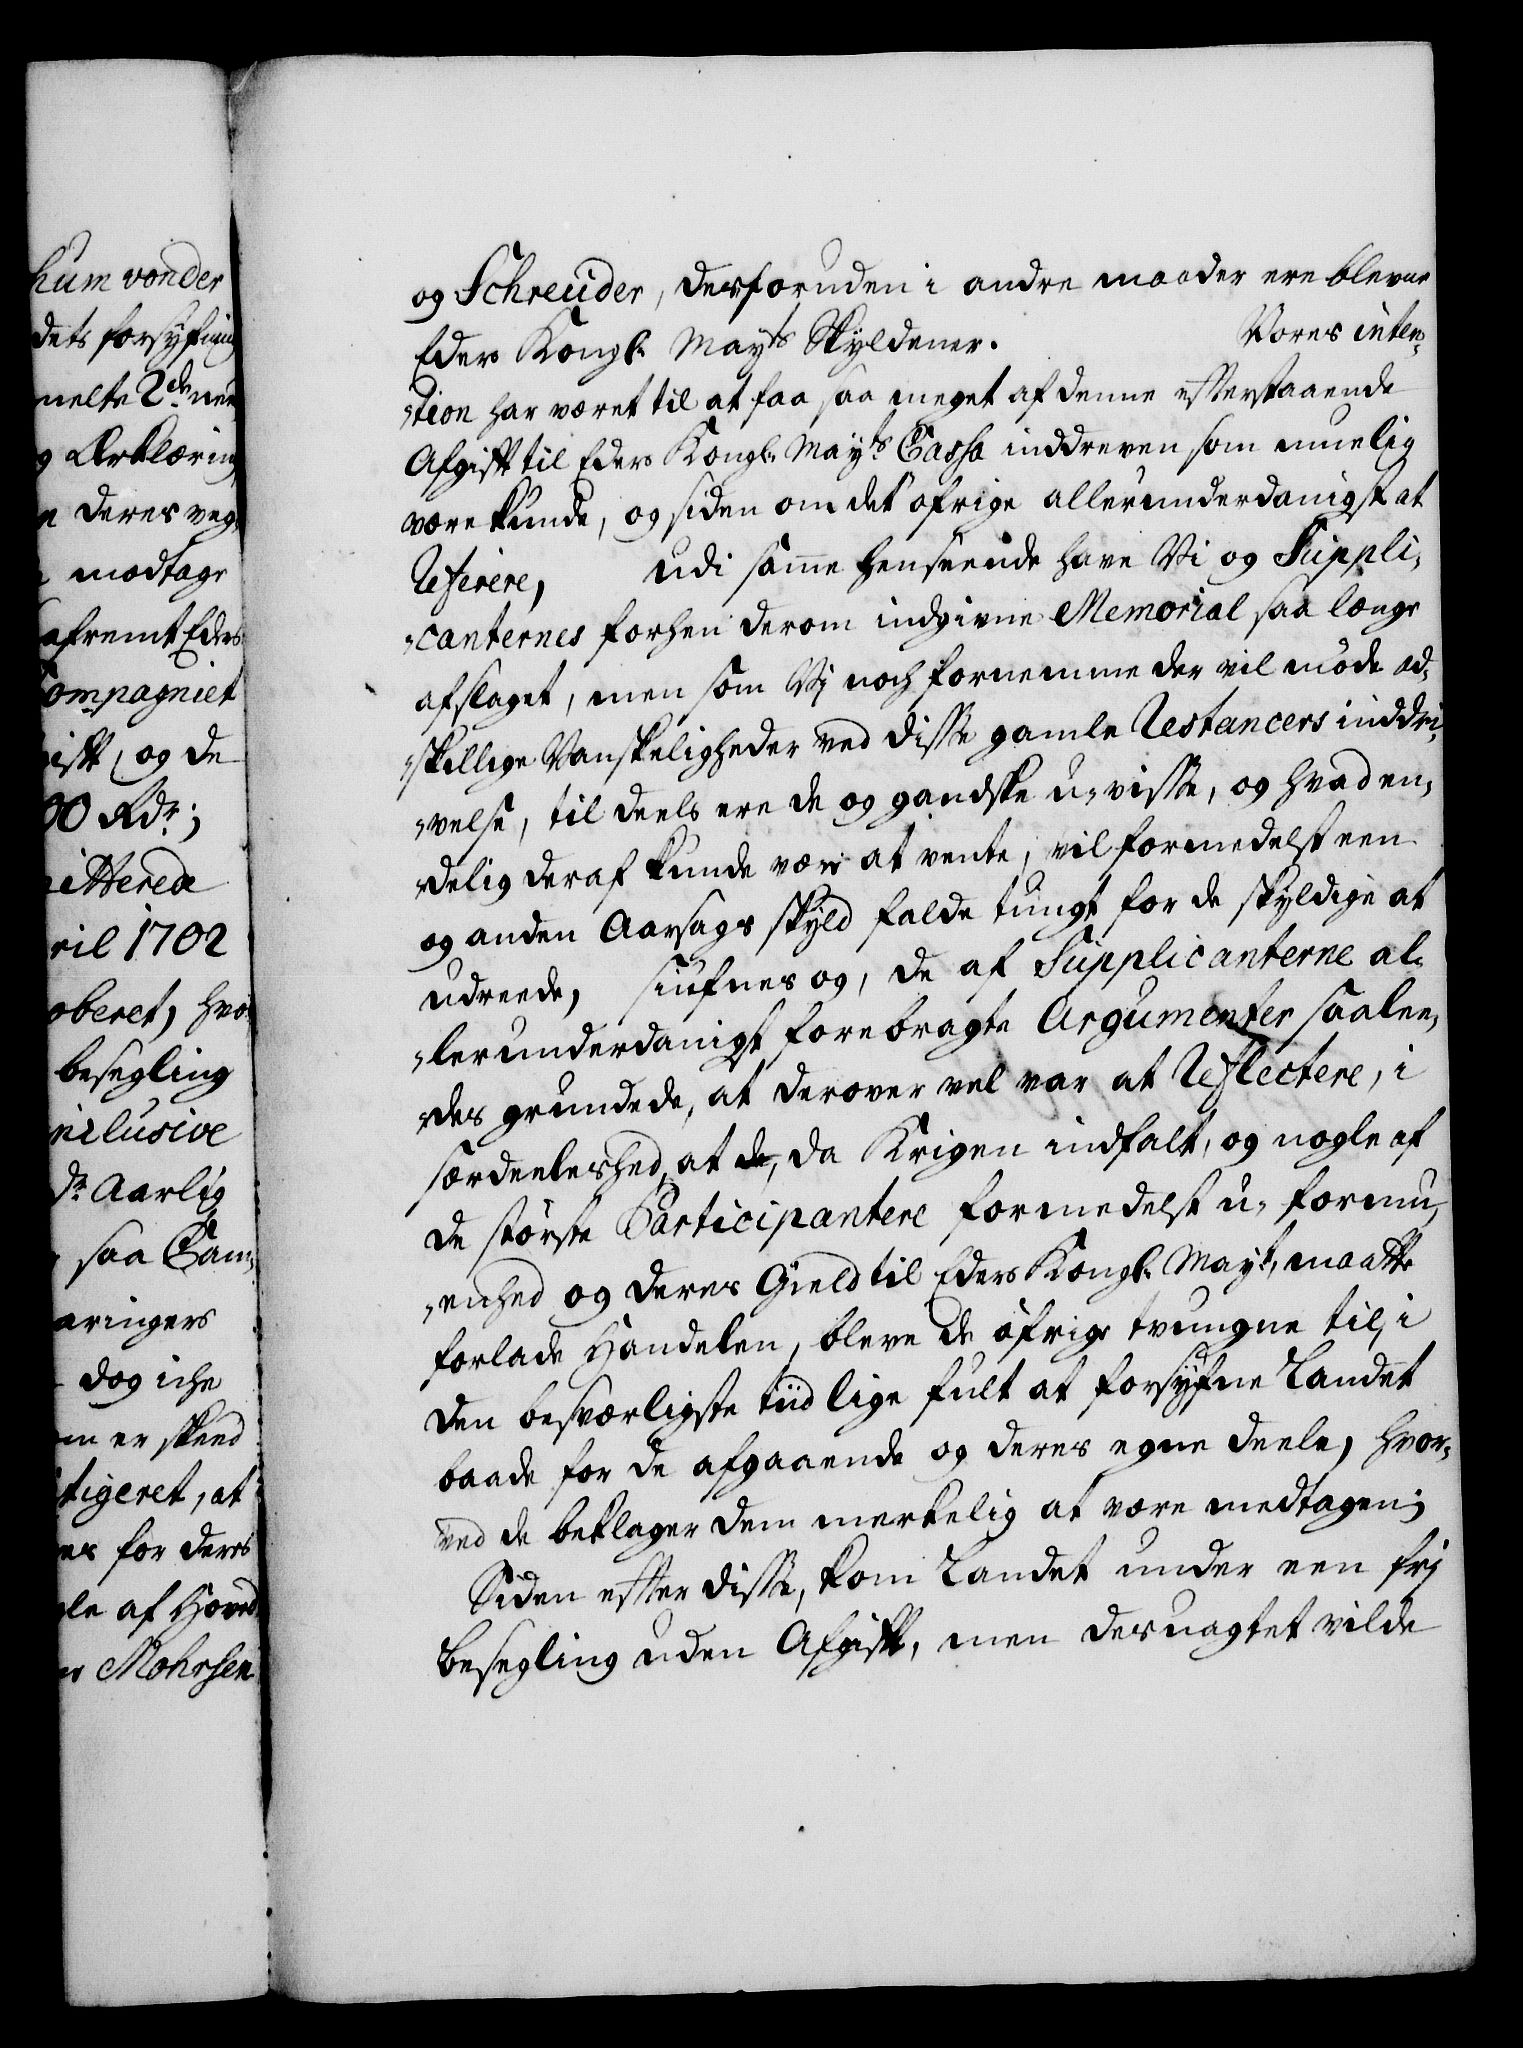 hum vonder
dets forsyfning
melte 2de ner
g Erklæring
n deres veg¬
modtage
afremt Eders
Compagniet
ift, og de
00 Rdr;
itterede
ril 1702
oberet, hvo
besegling
nclusive
dr Aarlig
saa Cam¬
aringers
dog iche
m er skeed
tigeret, at
er for deres
le af Hoved
Mohrsen
og Schreuder, desforuden i andre maader ere blevne
Eders Kongl. Mayts Skyldener. Vores inten¬
tion har været til at faa saa meget af denne efterstaaende
Afgift til Eders Kongl. Mayts Cassa inddreven som muelig
være kunde, og siden om det øfrige allerunderdanigst at
Referere, udi samme henseende have Vi og Suppli¬
canternes forhen derom indgivne Memorial saa længe
afslaget, men som Vi noch fornemme der vil møde ad¬
skillige Vanskeligheder ved disse gamle Restancers inddri¬
velse, til deels ere de og gandske u-visse, og hvad en¬
delig deraf kunde være at vente, vil formedelst een
og anden Aarsags skyld falde tungt for de skyldige at
udreede, siufnes og, de af Supplicanterne al¬
lerunderdanigst forebragte Argumenter saalee¬
des grundede, at derover vel var at Reflectere, i
særdeeleshed, at de, da Krigen indfalt, og nogle af
de største Participantere formedelst u-formu¬
enhed og deres Gield til Eders Kongl. Mayt, maatte
forlade Handelen, bleve de øfrige tvungne til, i
den besværligste tiid lige fult at forsyfne Landet
baade for de afgaaende og deres egne deele, hvor¬
ved de beklager dem merkelig at være medtagen;
Siden efter disse, kom Landet under een frj
besegling uden Afgift, men desuagtet vilde